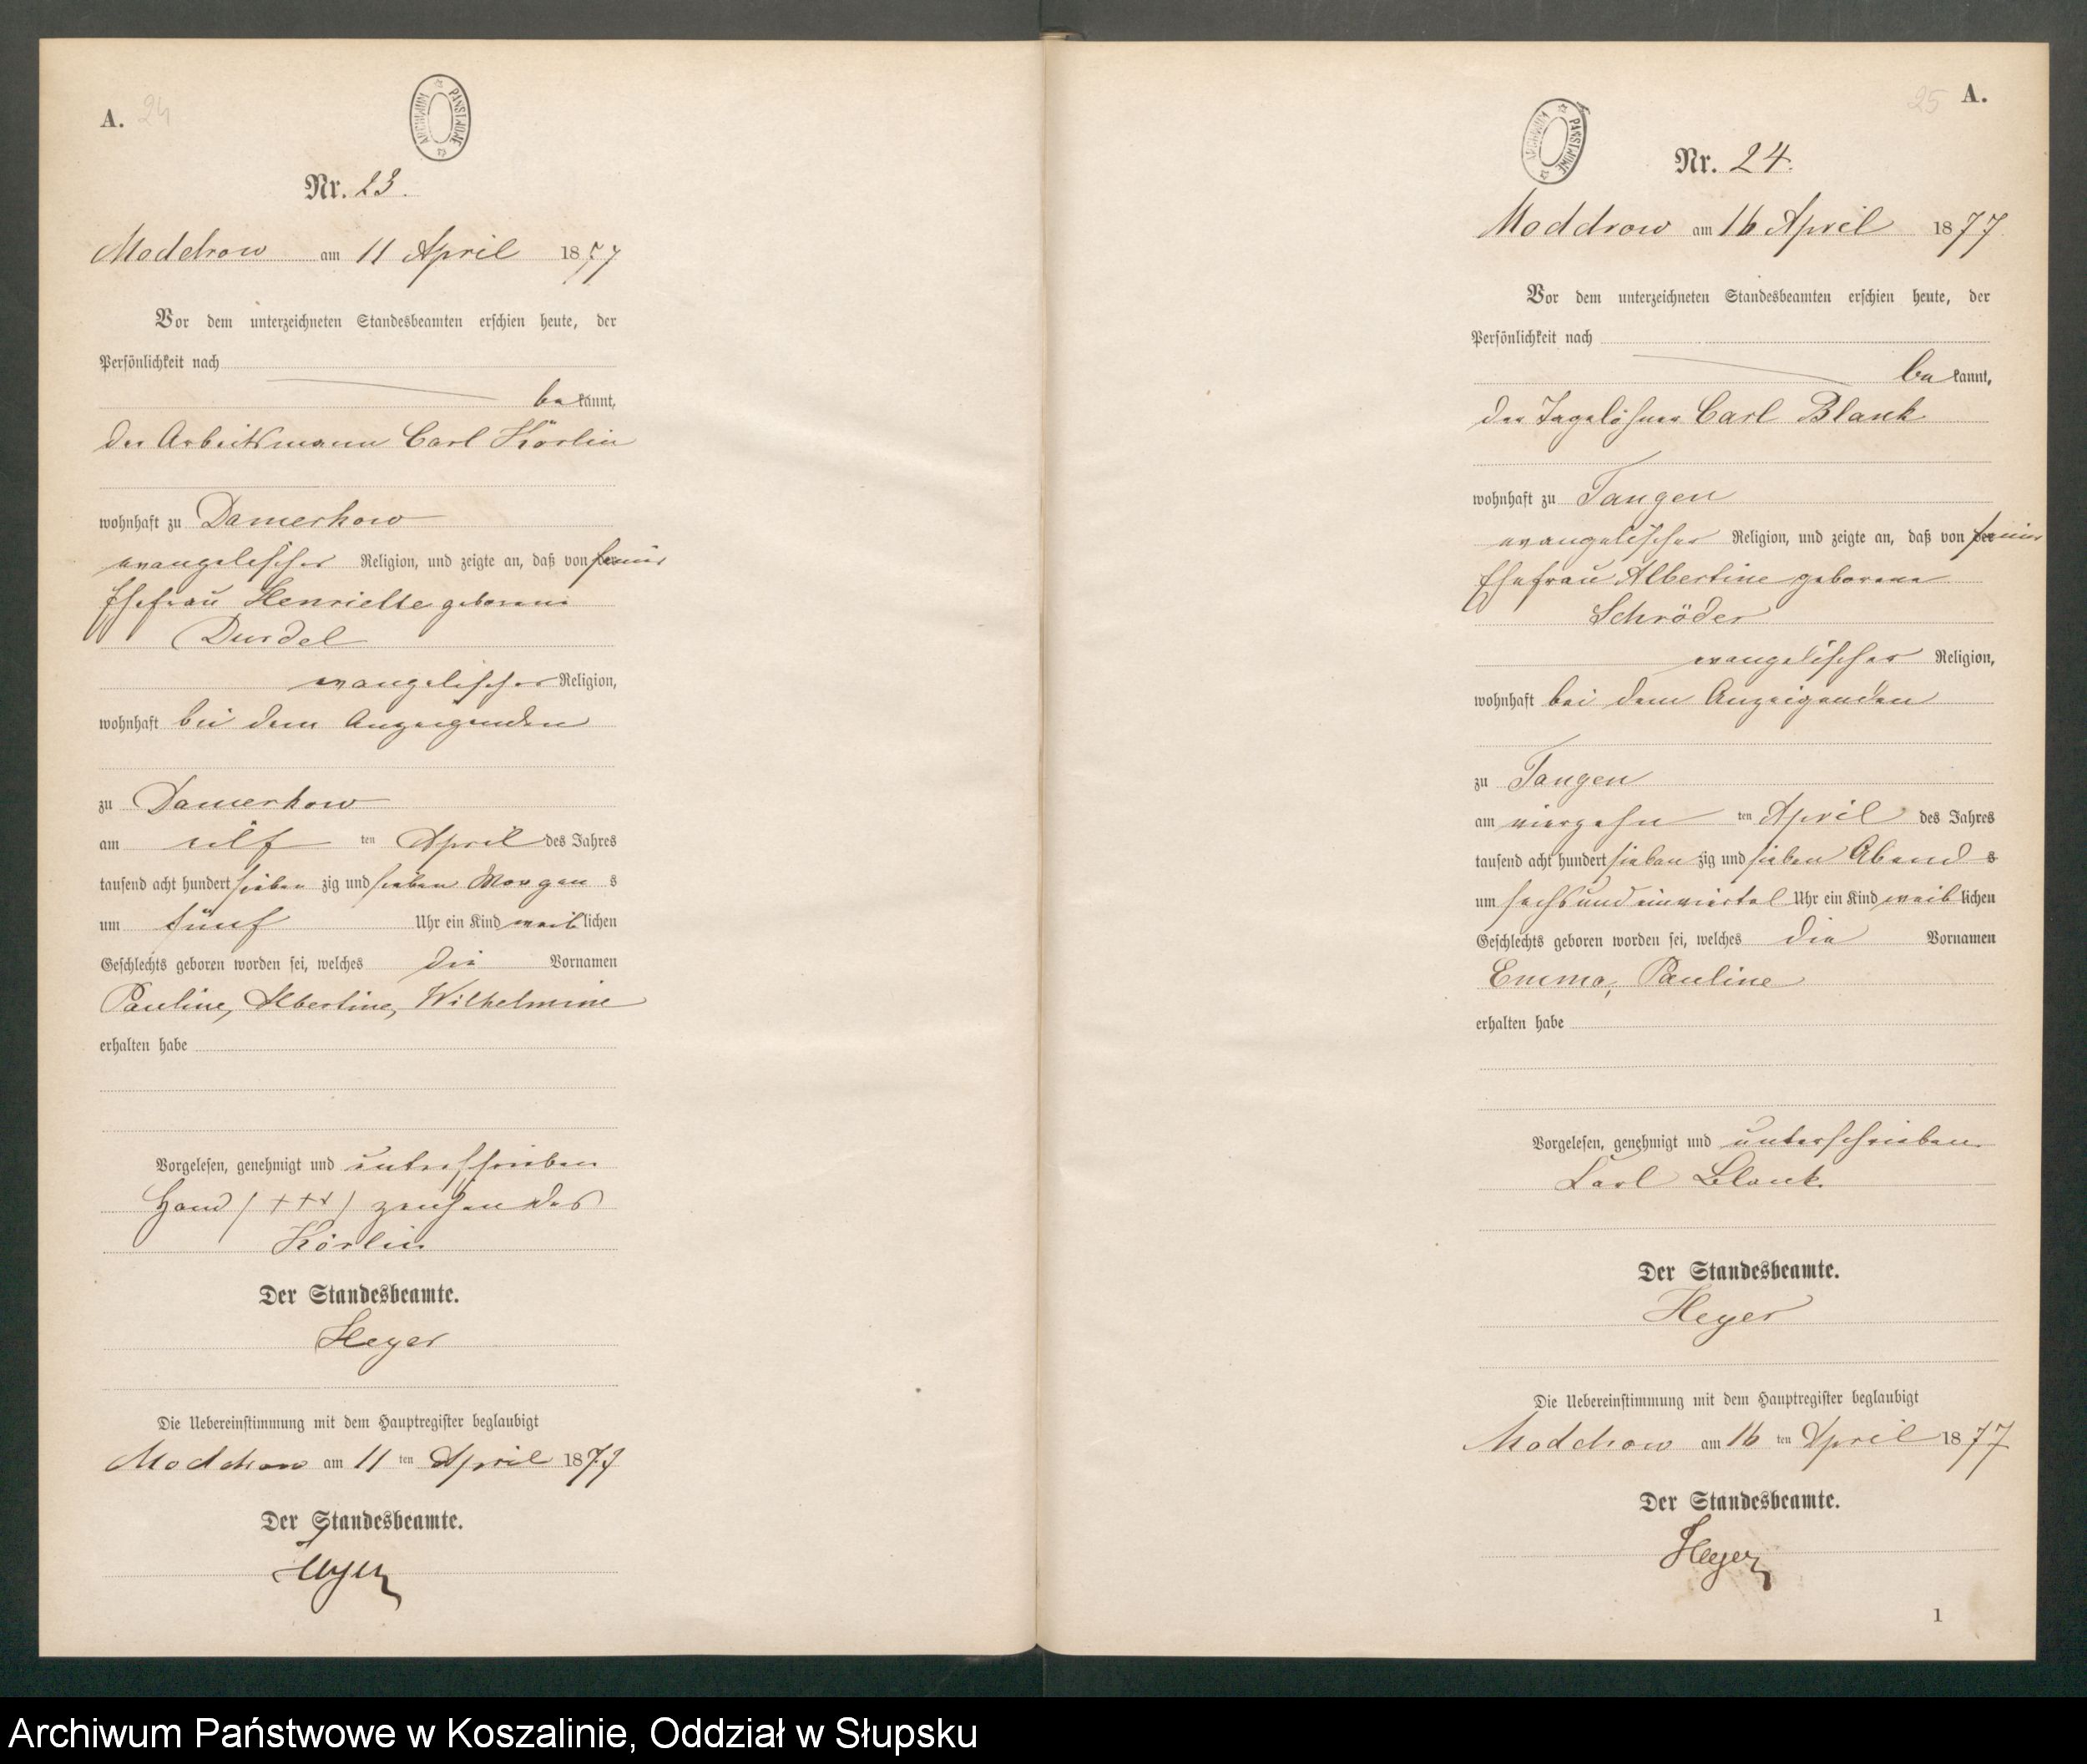 A. 24
ARCHIWUM PAŃSTWOWE
Nr. 23.
Moddrow am 11 April 1877
Vor dem unterzeichneten Standesbeamten erschien heute, der
Persönlichkeit nach
be kannt,
der Arbeitsmann Carl Körlin
wohnhaft zu Damerkow
evangelischer Religion, und zeigte an, daß von der seiner
Ehefrau Henriette geborene
Durdel
evangelischer Religion,
wohnhaft bei dem Anzeigenden
zu Damerkow
am eilf ten April des Jahres
tausend acht hundert sieben zig und sieben Morgen s
um fünf Uhr ein Kind weib lichen
Geschlechts geboren worden sei, welches die Vornamen
Pauline, Albertine, Wilhelmine
erhalten habe
Vorgelesen, genehmigt und unterschrieben
Hand (+++) zeichen des
Körlin
Der Standesbeamte.
Heyer
Die Uebereinstimmung mit dem Hauptregister beglaubigt
Moddrow am 11 ten April 1877
Der Standesbeamte.
Heyer
25 A.
ARCHIWUM PAŃSTWOWE
Nr. 24.
Moddrow am 16 April 1877
Vor dem unterzeichneten Standesbeamten erschien heute, der
Persönlichkeit nach
be kannt,
der Tagelöhner Carl Blank
wohnhaft zu Tangen
evangelischer Religion, und zeigte an, daß von der seiner
Ehefrau Albertine geborene
Schröder
evangelischer Religion,
wohnhaft bei dem Anzeigenden
zu Tangen
am vierzehn ten April des Jahres
tausend acht hundert sieben zig und sieben Abend s
um sechs und einviertel Uhr ein Kind weib lichen
Geschlechts geboren worden sei, welches die Vornamen
Emma, Pauline
erhalten habe
Vorgelesen, genehmigt und unterschrieben.
Karl Blank.
Der Standesbeamte.
Heyer
Die Uebereinstimmung mit dem Hauptregister beglaubigt
Moddrow am 16 ten April 1877
Der Standesbeamte.
Heyer
1
Archiwum Państwowe w Koszalinie, Oddział w Słupsku